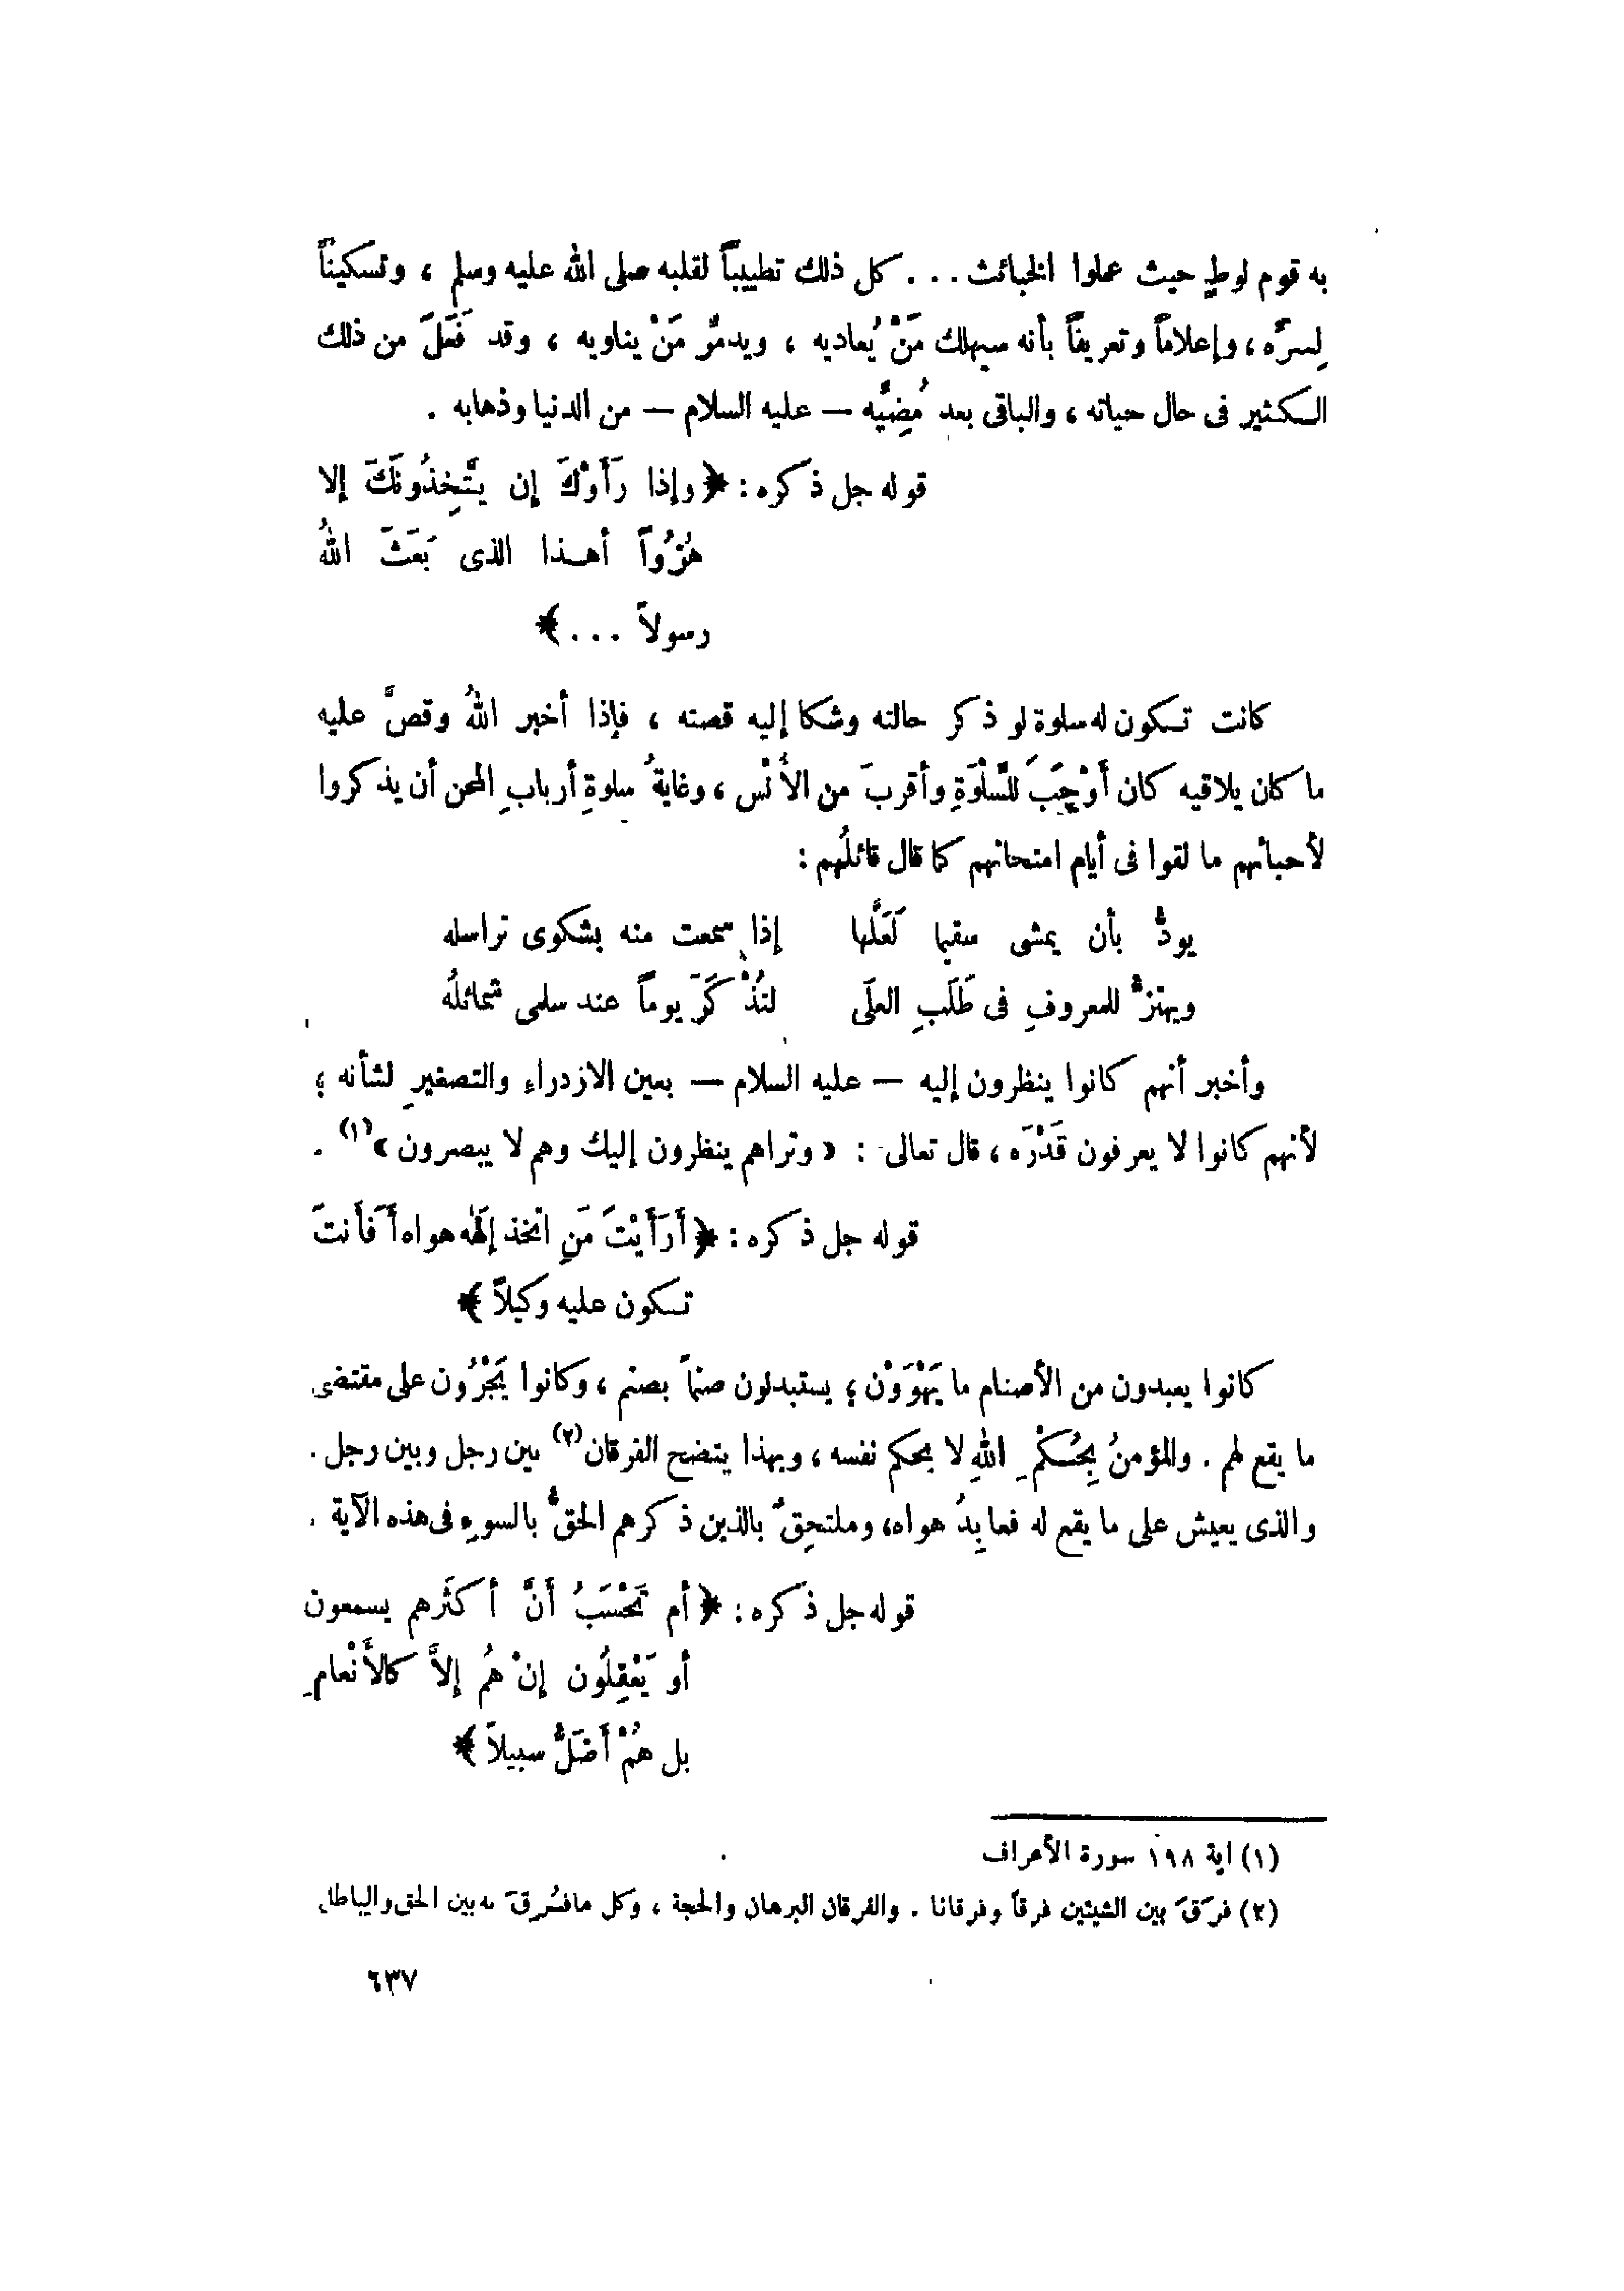 به قوم لوطٍ حيث عملوا الخبائث . . . كل ذلك تطييباً لقلبه صلى الله عليه وسلم ، وتسكيناً
لِسرِّه ، وإعلاماً وتعريفاً بأنه سيهلك مَنْ يُعاديه ، ويدمِّر مَنْ يناويه ، وقد فَعَلَ من ذلك
الكثير فى حال حياته ، والباقى بعد مُضِيِّه — عليه السلام — من الدنيا وذهابه .
قوله جل ذكره : ﴿ وإذا رَأَوْكَ إن يَتَّخِذُونَكَ إلا
هُزُواً أهذا الذى بَعَثَ اللهُ
رسولاً . . . ﴾
كانت تكون له سلوة لو ذكر حالته وشكا إليه قصته ، فإذا أخبر اللهُ وقصَّ عليه
ما كان يلاقيه كان أَوْجَبَ للسَّلْوَةِ وأقربَ من الأُنْس ، وغايةُ سلوةِ أربابِ المحن أن يذكروا
لأحبائهم ما لقوا فى أيام امتحانهم كما قال قائلُهم :
يودُّ بأن يمشى سقيما لَعَلَّها    إذا سمعت منه بشكوى تراسله
ويهتزُّ للمعروفِ فى طَلَبِ العلَى    لتُذْكَرَ يوماً عند سلمى شمائلُه
وأخبر أنهم كانوا ينظرون إليه — عليه السلام — بعين الازدراء والتصغيرِ لشأنه ؛
لأنهم كانوا لا يعرفون قَدْرَه ، قال تعالى : « وتراهم ينظرون إليك وهم لا يبصرون »(١) .
قوله جل ذكره : ﴿ أَرَأَيْتَ مَنِ اتخذ إلَهَه هواه أَفأَنتَ
تكون عليه وكيلاً ﴾
كانوا يعبدون من الأصنام ما يَهْوَوْن ؛ يستبدلون صنماً بصنم ، وكانوا يَجْرُون على مقتضى
ما يقع لهم . والمؤمنُ بِحُكْمِ اللهِ لا بحكم نفسه ، وبهذا يتضح الفرقان(٢) بين رجل وبين رجل .
والذى يعيش على ما يقع له فعابِدُ هواه ، وملتحِقٌ بالذين ذكرهم الحقُّ بالسوءِ فى هذه الآية .
قوله جل ذكره : ﴿ أم تَحْسَبُ أَنَّ أكثَرهم يسمعون
أو يَعْقِلُون إنْ هُم إلاَّ كالأَنْعامِ
بل هُمْ أَضَلُّ سبيلاً ﴾
(١) آية ١٩٨ سورة الأعراف
(٢) فرَقَ بين الشيئين فرقاً وفرقانا . والفرقان البرهان والحجة ، وكل ما فُرِقَ به بين الحق والباطل
٦٣٧